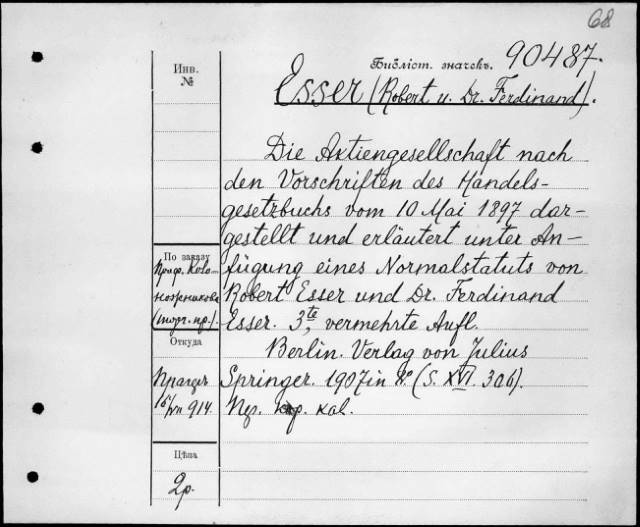 68
Библіот. значекъ. 90487.
Инв.
№
Esser (Robert u. Dr. Ferdinand).
Die Aktiengesellschaft nach
den Vorschriften des Handels-
gesetzbuchs vom 10 Mai 1897 dar-
gestellt und erläutert unter An-
fügung eines Normalstatuts von
Robert Esser und Dr. Ferdinand
Esser. 3te, vermehrte Aufl.
Berlin. Verlag von Julius
Springer. 1907 in 8° (S. XVI. 306).
kal.
По заказу
Проф.
(торг. пр.).
Откуда
Прагеръ
914.
Цѣна
2р.